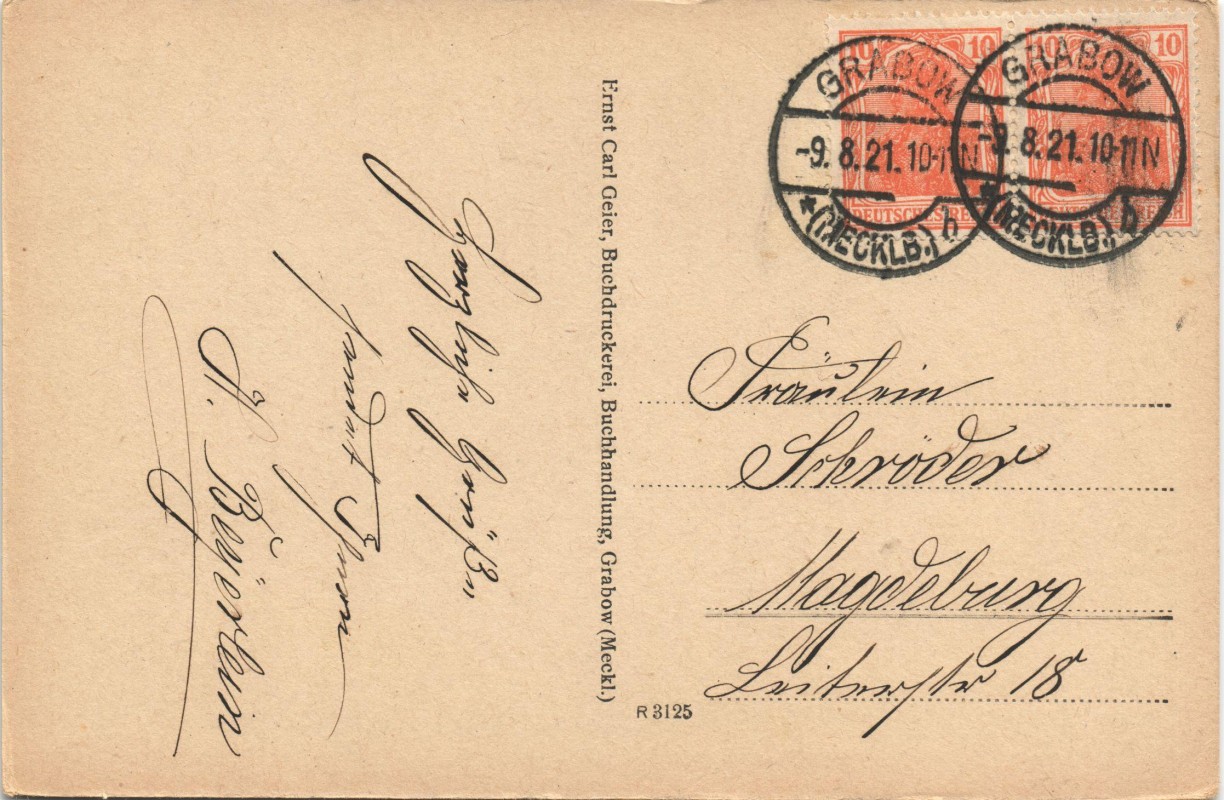 Herzliche Grüße
sendet Ihnen
Ernst Carl Geier, Buchdruckerei, Buchhandlung, Grabow (Meckl.)
R 3125
10 10
DEUTSCHES REICH
GRABOW
-9.8.21.10-11N
* (MECKLB.) b
10 10
DEUTSCHES REICH
GRABOW
-9.8.21.10-11N
* (MECKLB.) b
Fräulein
Schröder
Magdeburg
Leiterstr 18